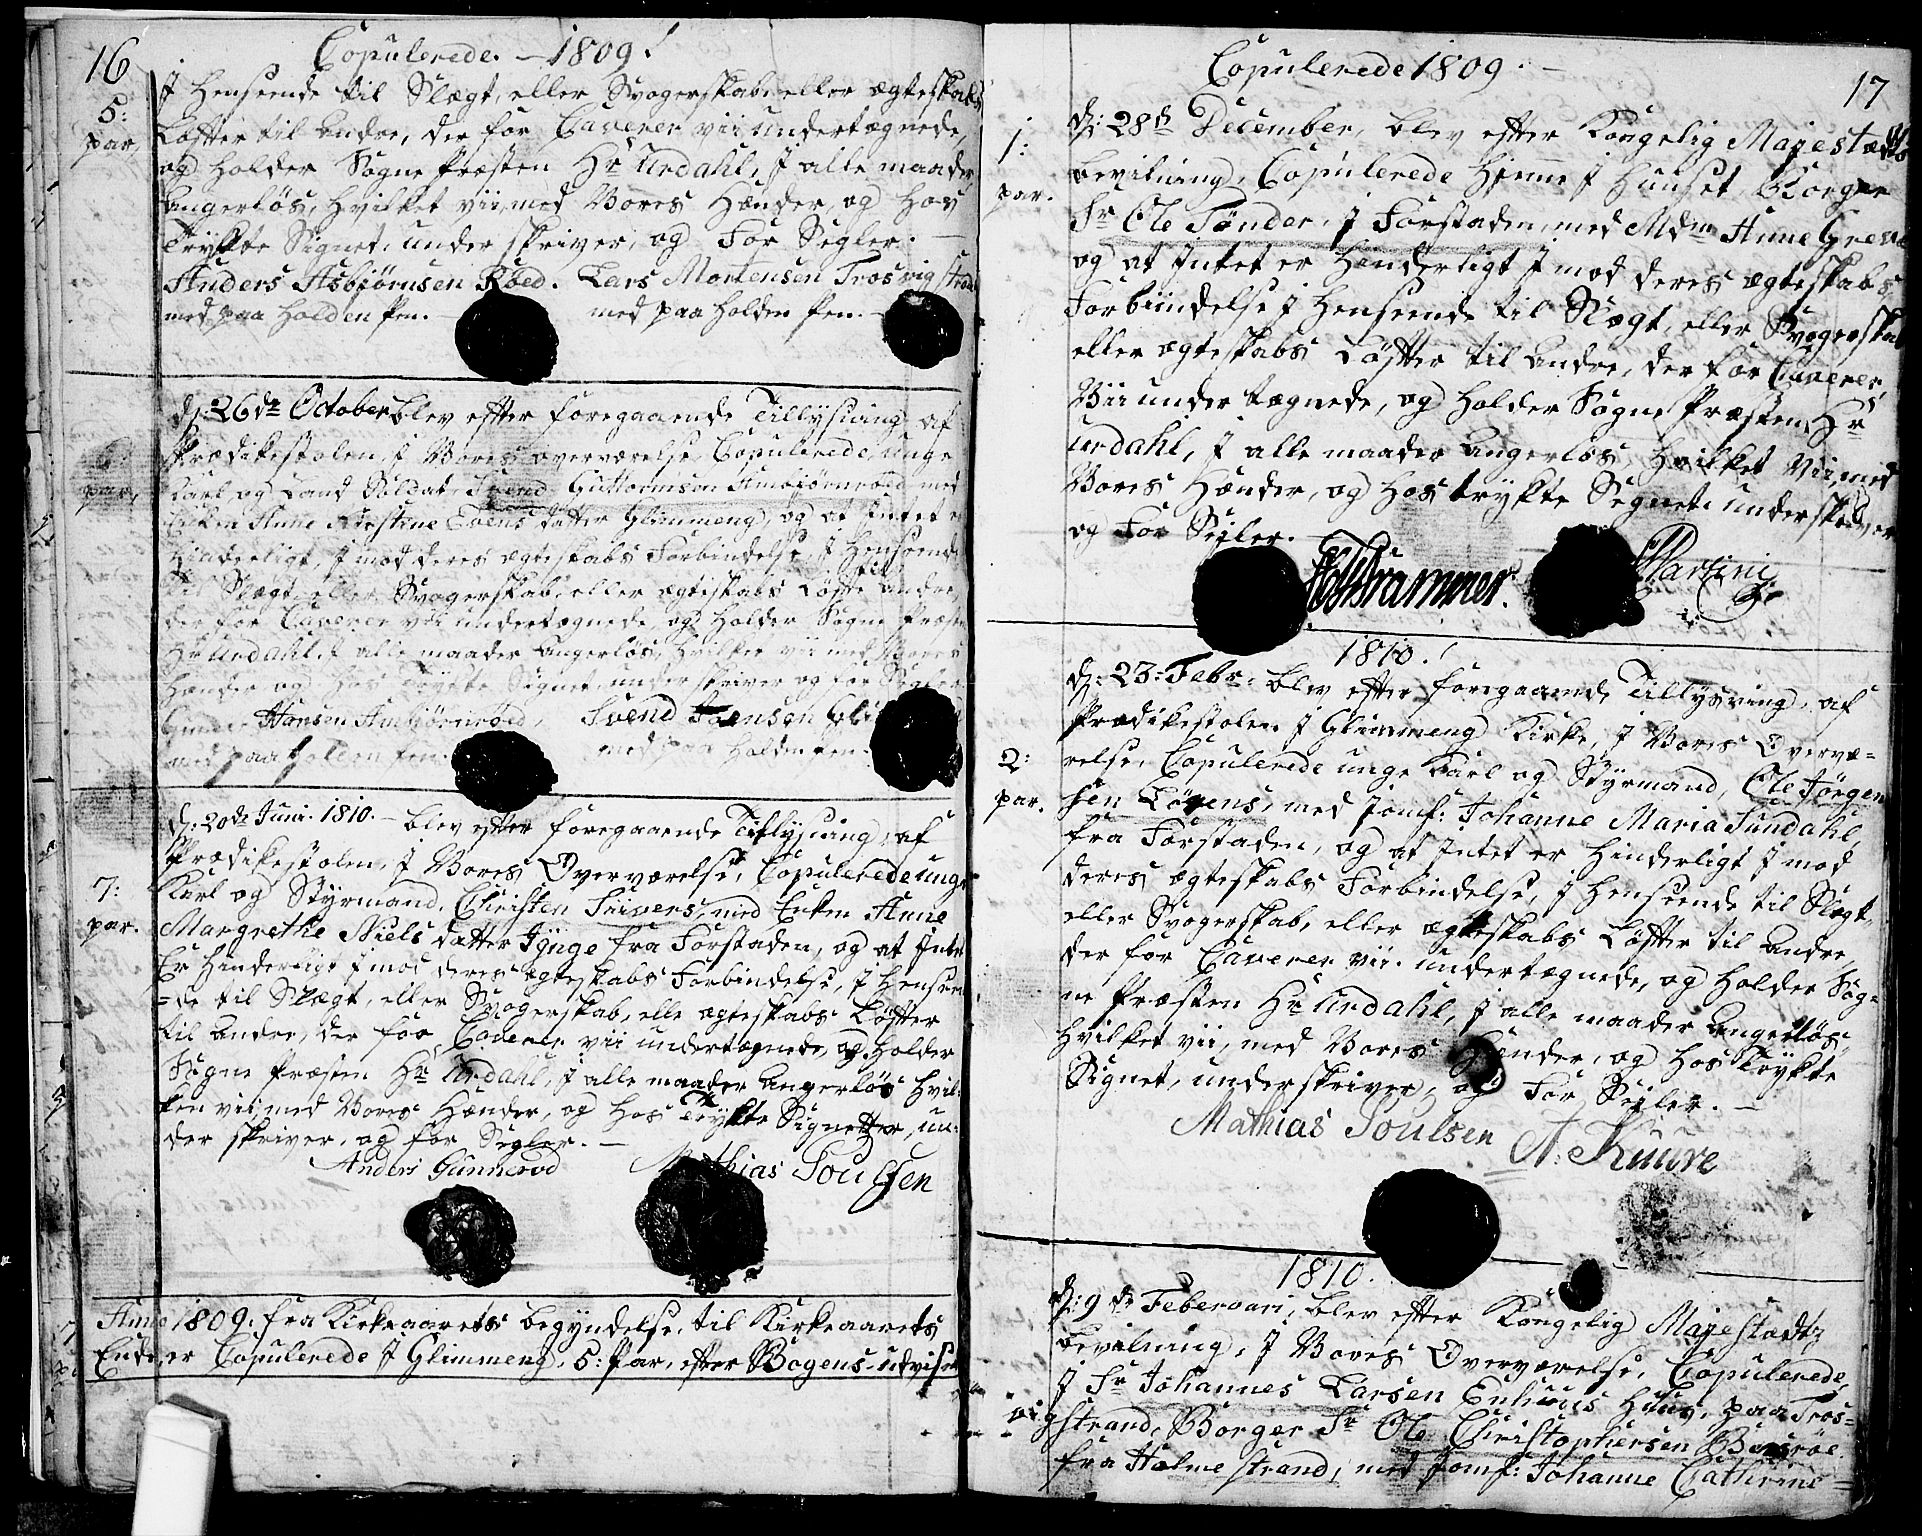 16
Copulerede. – 1809.
5:
par,
J Henseende til Slægt, eller Svogerskab, eller ægteskabs
Løfter til andre, der for Caverer vii undertegnede,
og holder Sogne Præsten Hr Urdahl, J alle maader
angerløs, hvilket vii, med Vores Hænder, og hos
Trykte Signet, under skriver, og For Segler.
Anders Asbjørnsen Røed. Lars Mortensen Trosvig
med paa holden Pen. med paa holden Pen.
d: 26de October blev efter foregaaende Tillysning af
Prædikestolen, J Vores overværelse, Copulerede, unge
par,
Karl og Land Soldat, Svend Guttormsen Ambiørnrøed med
Enken Anne Kierstine Evens datter Glimmeng, og at Intet er
Hinderligt, J mod deres ægteskabs Forbindelse, J Henseende
til Slægt, eller Svogerskab, eller ægteskabs Løfte til andre,
der for Caverer vii undertegnede, og holder Sogne Præsten
Hr Urdahl, J alle maader angerløs, hvilket vii med Vores
Hænder og hos Trykte Signet, under skriver og for Segler
Hansen Ambiørnrøed, Svend
med paa holden Pen. med paa holden Pen.
d: 20de Juni. 1810. – blev efter foregaaende Tillysning, af
Prædikestolen, J Vores Overværelse, Copulerede unge
7:
par.
Karl og Styrmand, Christen Sivers, med Enken Anne
Margrethe Niels datter Iynge fra Forstaden, og at Intet
Er Hinderligt J mod deres ægteskabs Forbindelse, J Henseen
=de til Slægt, eller Svogerskab, elle ægteskabs Løfter
til andre, der for Caverer vii undertegnede, og holder
Sogne Præsten Hr Urdahl, J alle maader angerløs hvil-
ken vii, med Vores Hænder, og hos Trykte Signetter, un-
der skriver, og for Segler. –
Anders Gunnerød Mathias Poulsen
Anno 1809. fra Kirkeaarets begyndelse, til Kirkeaarets
Ende, er Copulerede J Glimmeng, 5: Par, efter Bogens udvisen
17
Copulerede 1809. –
1:
par.
d: 28de December, blev efter Kongelig Majestæts
bevilning, Copulerede hjemme J Huuset, Borger
Sr Ole Tønder, J Forstaden, med Mdm Anne Greve
og at Intet er Henderligt J mod deres ægteskabs
Forbiindelse J Henseende til Slægt, eller Svogerskab
eller ægteskabs Løfter til andre, der for Caverer,
Vii under tegnede, og holder Sogne Præsten, Hr
Urdahl, J alle maader angerløs, hvilket vii, med
Vores Hænder, og hos trykte Segnet, underskriver
og For Segler.
Martini
1810.
d: 23: Febr: blev efter foregaaende Tillysning, af
Prædikestolen J Glimmeng Kirke, J Vores Overvæ-
2:
par.
relse, Copulerede unge Karl og Styrmand, Ole Jørgen
sen Løgens, med Jomf: Johanne Maria Sundahl
fra Forstaden, og at Intet er Hinderligt J mod
deres ægteskabs Forbindelse, J Henseende til Slægt,
eller Svogerskab, eller ægteskabs Løfter til andre,
der for Caverer vii undertegnede, og holder Sog-
ne Præsten Hr Urdahl, J alle maader angerløs,
hvilket vii, med Vores Hænder, og hos Trykte
Signet, underskriver, og For Segler. –
Mathias Poulsen A: Kuure
1810.
d: 9de Februari, blev efter Kongelig Majestædtz
bevilning, J Vores Overværelse, Copulerede,
J Sr Johannes Larsen Enhuus Huus, paa Tros-
vigstrand, Borger Sr Ole Christophersen
fra Holmestrand, med Jomf: Johanne Cathrine